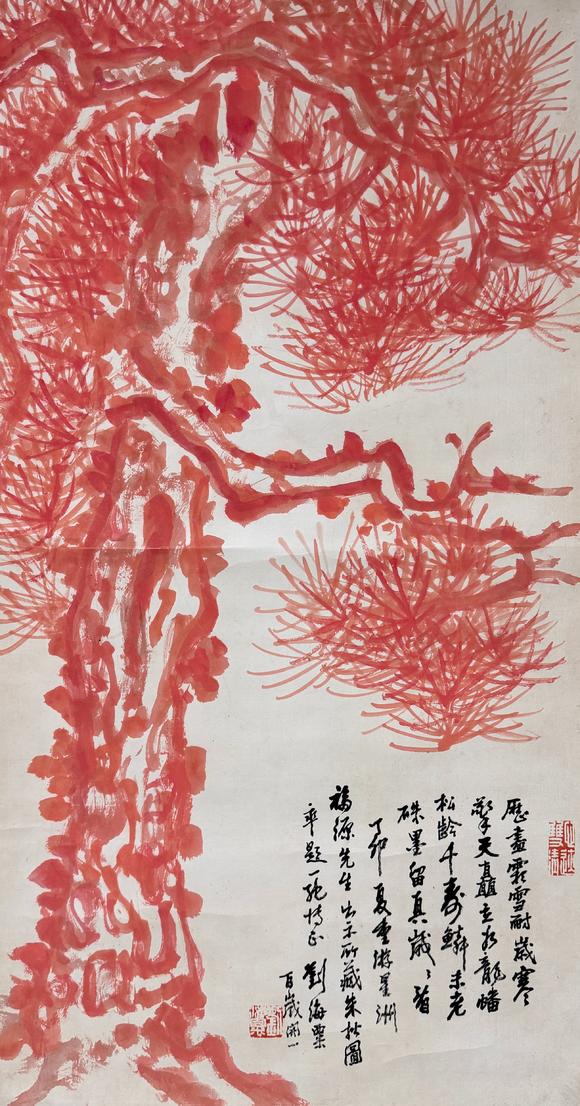 歷盡霜雪耐歲寒
擎天矗立如龍蟠
松齡千壽鱗未老
硃墨留真歲歲看
丁卯夏重游星洲
福源先生出示所藏朱松圖
率題一絕博正 劉海粟
百歲開一